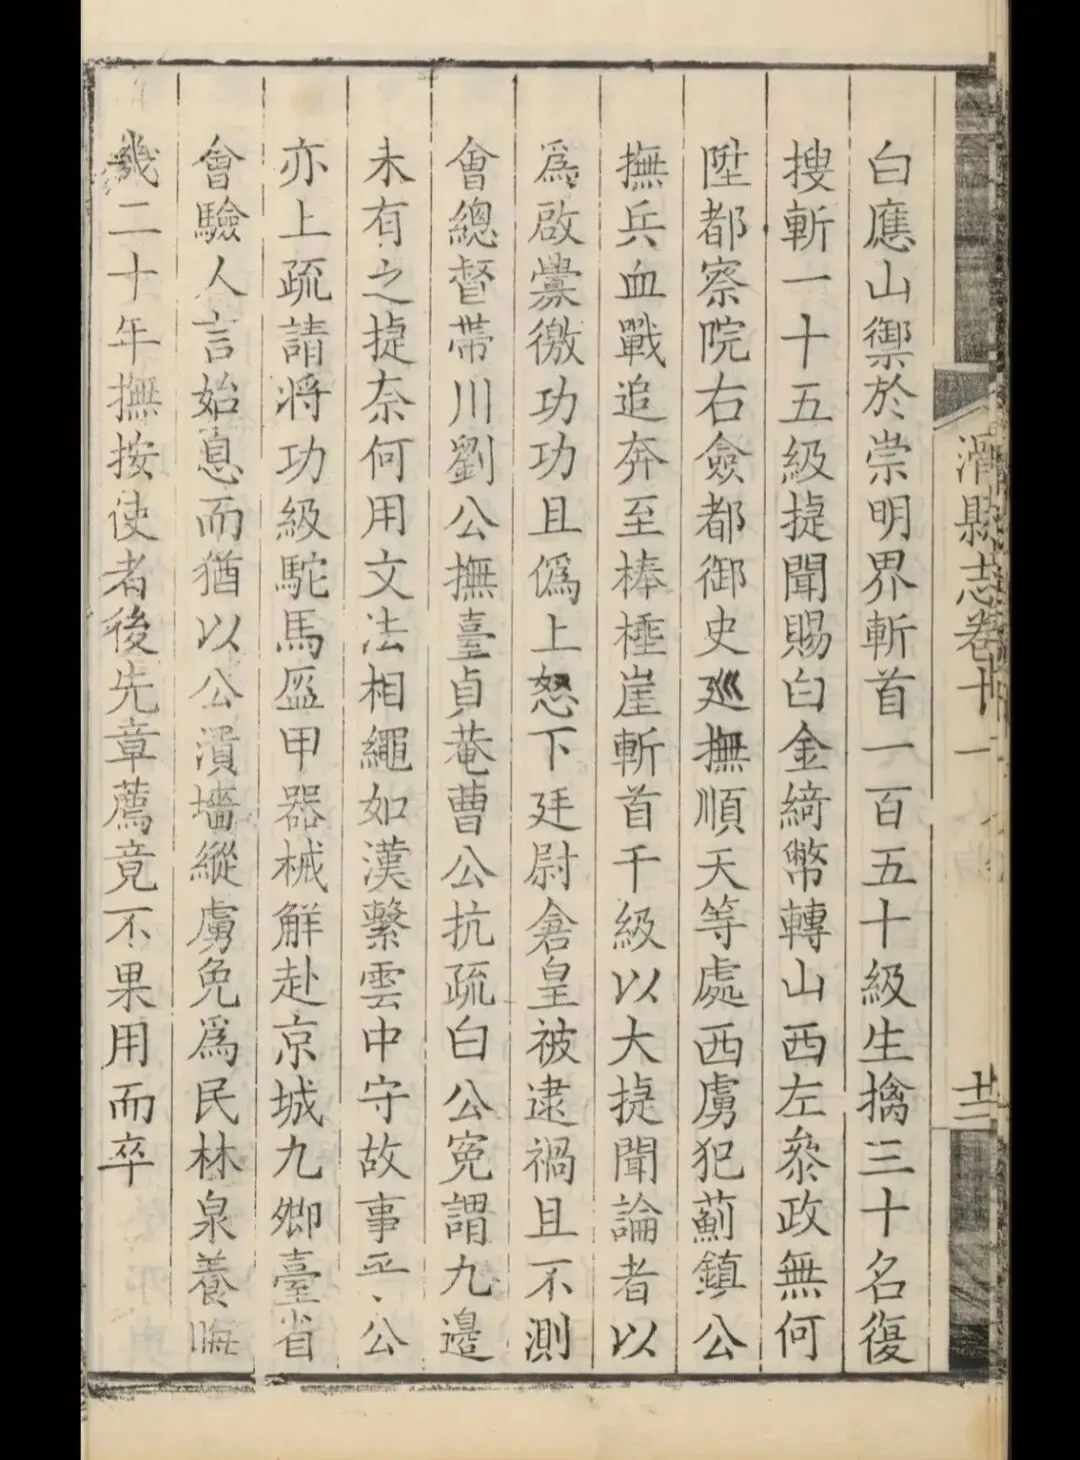 滑縣志卷十一
十二
白應山禦於崇明界斬首一百五十級生擒三十名復
搜斬一十五級捷聞賜白金綺幣轉山西左叅政無何
陞都察院右僉都御史廵撫順天等處西虜犯薊鎮公
撫兵血戰追奔至棒棰崖斬首千級以大捷聞論者以
爲啟釁徼功功且僞上怒下廷尉倉皇被逮禍且不測
會總督帶川劉公撫臺貞菴曹公抗疏白公寃謂九邉
未有之捷奈何用文法相繩如漢繫雲中守故事乎公
亦上疏請将功級駝馬盔甲器械觧赴京城九卿臺省
會驗人言始息而猶以公潰墻縱虜免爲民林泉養晦
幾二十年撫按使者後先章薦竟不果用而卒